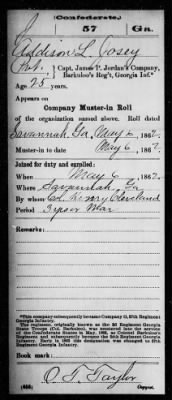 (Confederate.)
57 Ga.
Addison L. Josey
Pvt., Capt. James P. Jordan's Company,
Barkuloo's Reg't, Georgia Inf.*
Age 25 years.
Appears on
Company Muster-in Roll
of the organization named above. Roll dated
Savannah, Ga, May 2, 1862.
Muster-in to date May 6, 1862.
Joined for duty and enrolled:
When May 6, 1862.
Where Savannah, Ga
By whom Col. Henry Cleveland
Period 3 years or War
Remarks:
*This company subsequently became Company 57th Regiment
Georgia Infantry.
The regiment, originally known as the Regiment Georgia
State Troops was mustered into the service
of the Confederate States in May, 1862, as Colonel Barkuloo's
Regiment and subsequently became the Regiment Georgia
Infantry. Early in 1863 this designation was changed to 57th
Regiment Georgia Infantry.
Book mark:
O. T. Taylor
Copyist.